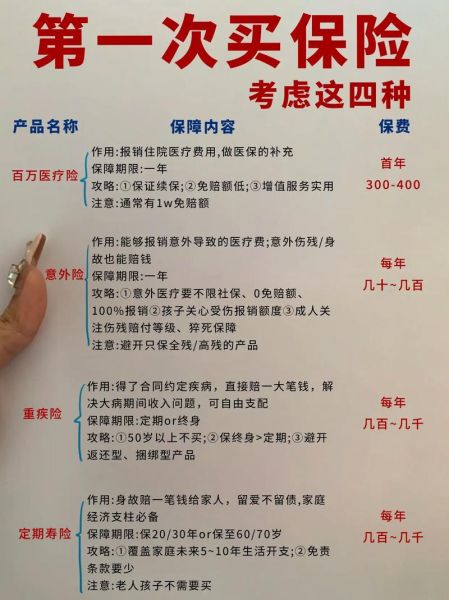 第一次买保险
考虑这四种
产品名称 保障内容 保费
百万医疗险
作用:报销住院医疗费用,做医保的补充
保障期限:一年
攻略:①保证续保;②免赔额低;③增值服务实用
注意:通常有1w免赔额
首年
300-400
意外险
作用:能够报销意外导致的医疗费;意外伤残/身
故也能赔钱
保障期限:一年
攻略:①意外医疗要不限社保、0免赔额、
100%报销②孩子关心受伤报销额度③成人关
注伤残赔付等级、猝死保障
注意:避开只保全残/高残的产品
每年
几十~几百
重疾险
作用:得了合同约定疾病，直接赔一大笔钱，解
决大病期间收入问题，可自由支配
保障期限:定期or终身
攻略:①50岁以上不买;②保终身>定期;③避开
返还型、捆绑型产品
每年
几百~几千
定期寿险
作用:身故赔一笔钱给家人，留爱不留债,家庭
经济支柱必备
保障期限:保20/30年or保至60/70岁
攻略:①覆盖家庭未来5~10年生活开支;②免责
条款要少
注意:老人孩子不需要买
每年
几百~几千